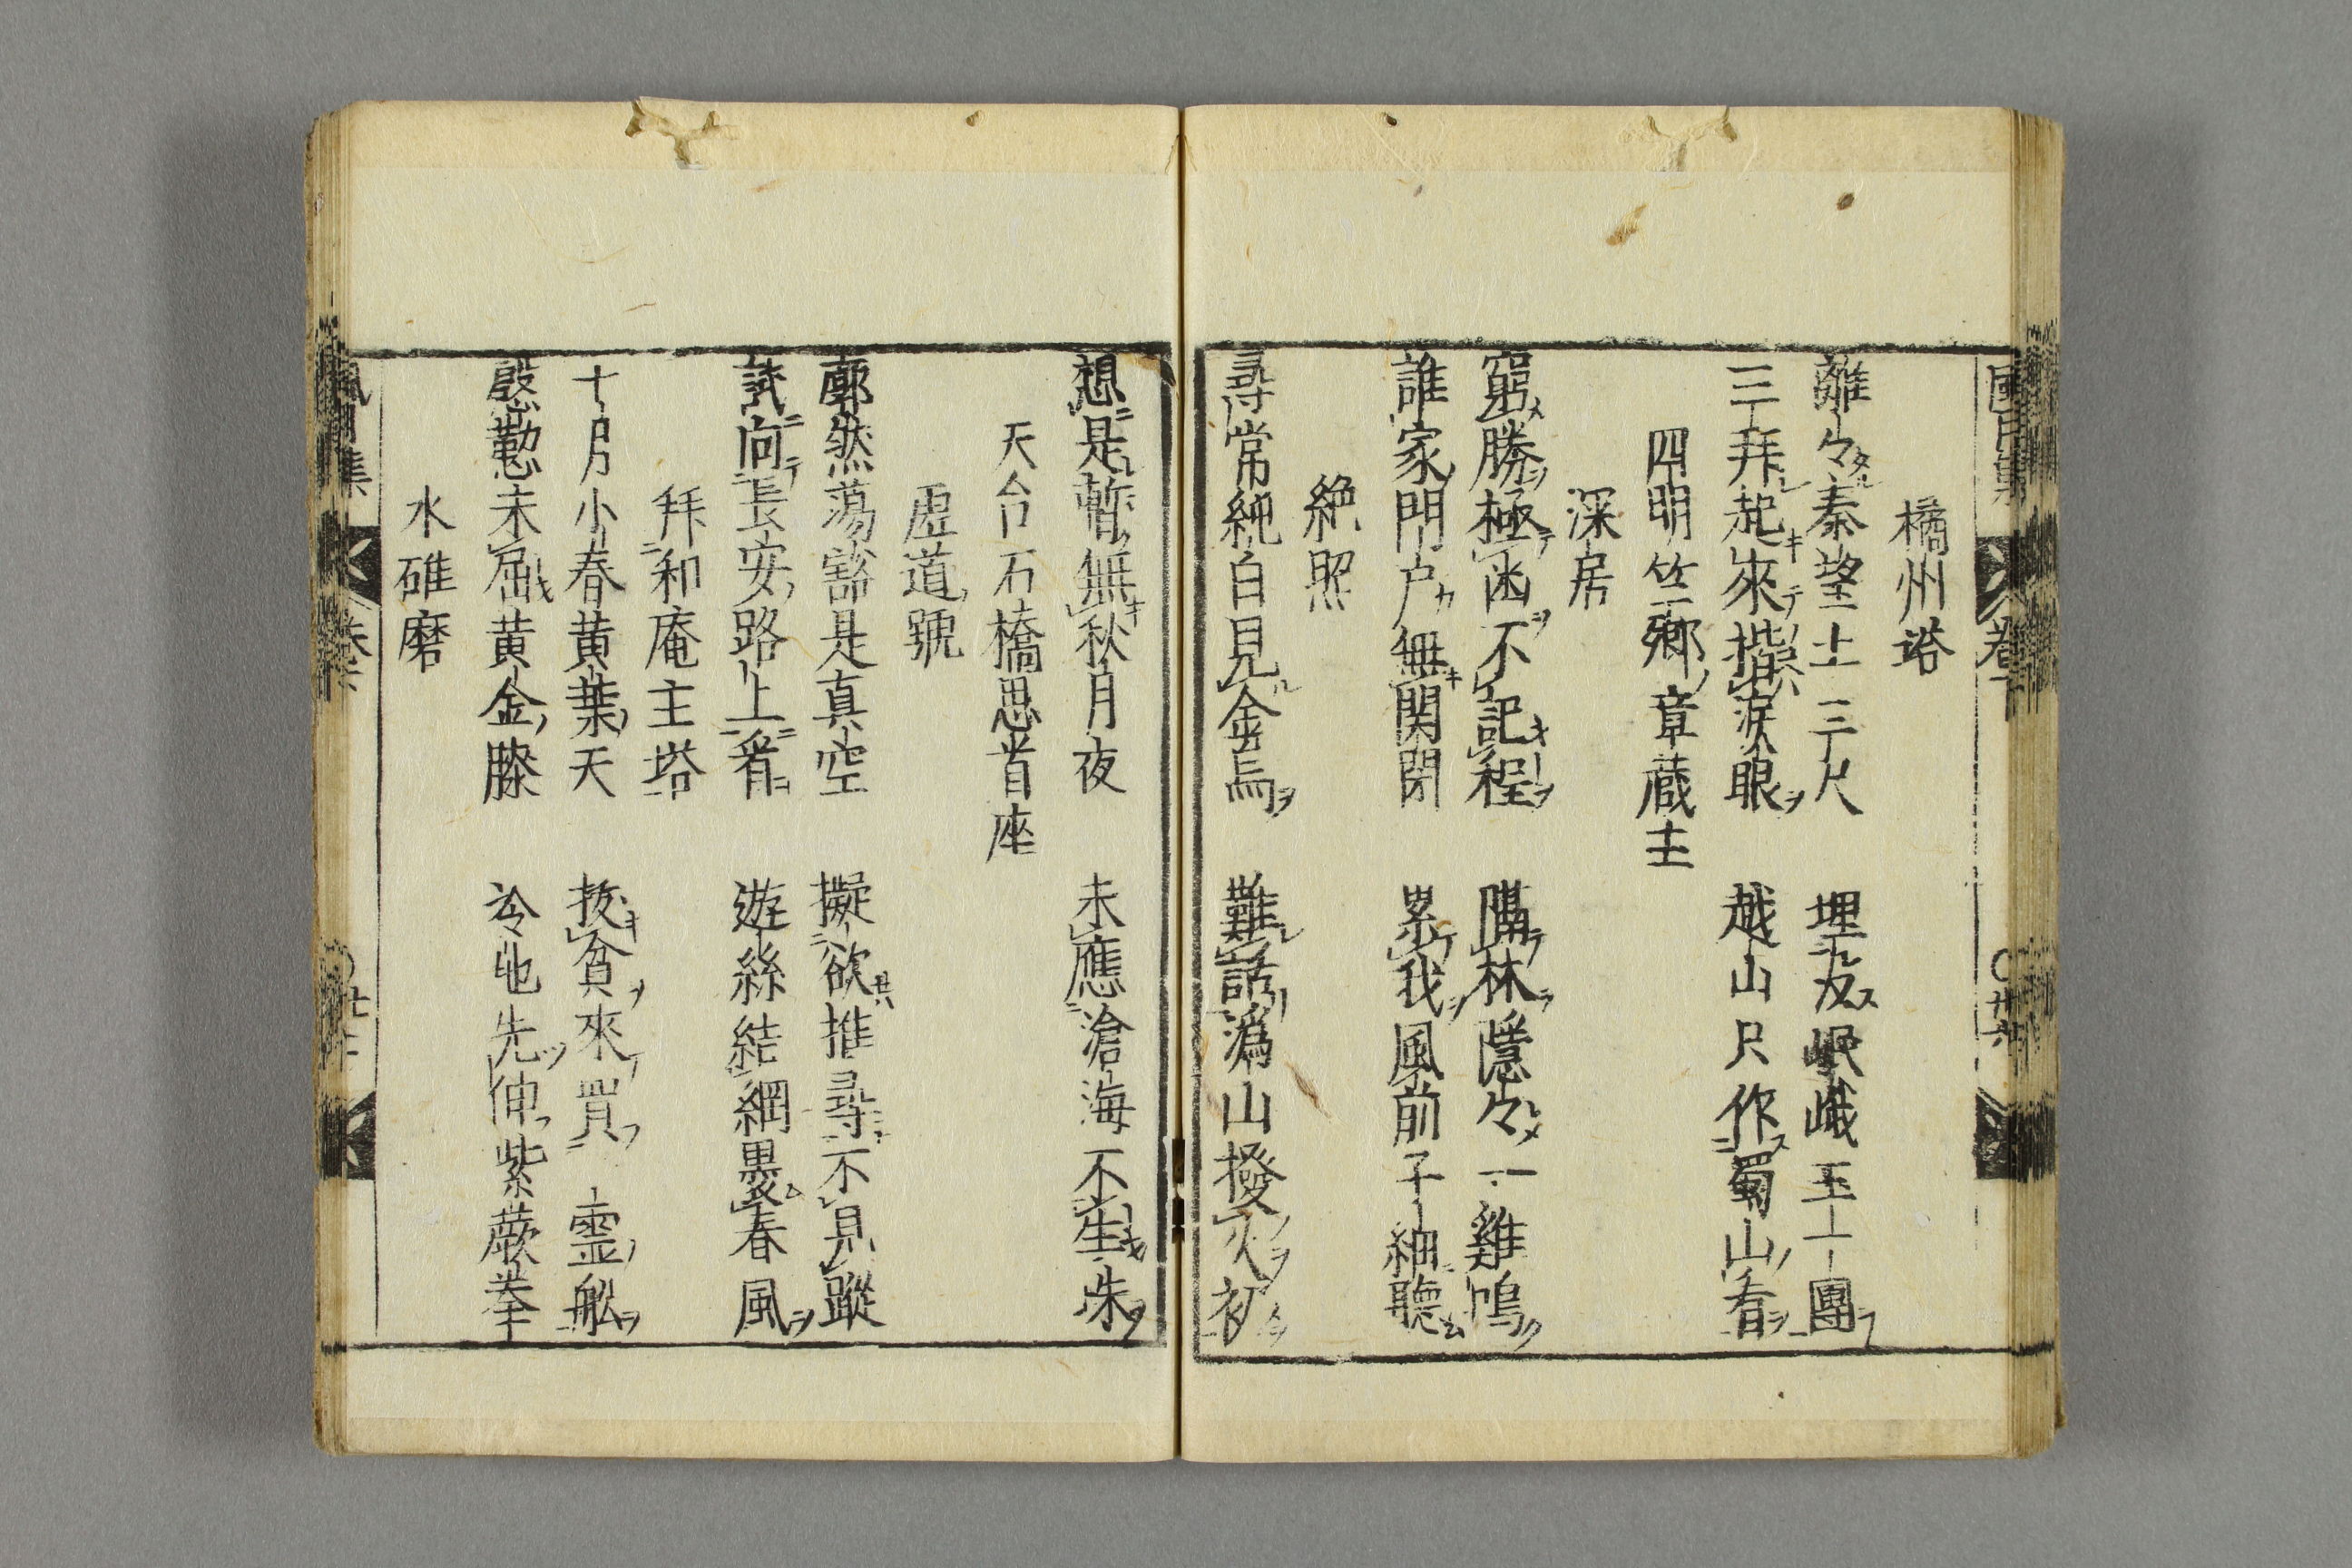 橘州塔
離々秦望土三尺　埋没岷峨玉一團
三拜起來揩涙眼　越山只作蜀山看
四明竺卿章蔵主
深居
窮勝極凶不記程　隔林隱々一雞鳴
誰家門戸無関閉　累我風前子細聽
絶照
尋常純白見金烏　難話潙山撥火初
想是暫無秋月夜　未應滄海不生珠
天台石橋思首座
虚道號
廓然蕩豁是真空　擬欲推尋不見蹤
試向長安路上看　遊絲結網褁春風
拜和庵主塔
十月小春黄葉天　投貧來買一霊舩
慇懃未屈黄金膝　冷地先伸紫蕨拳
水碓磨